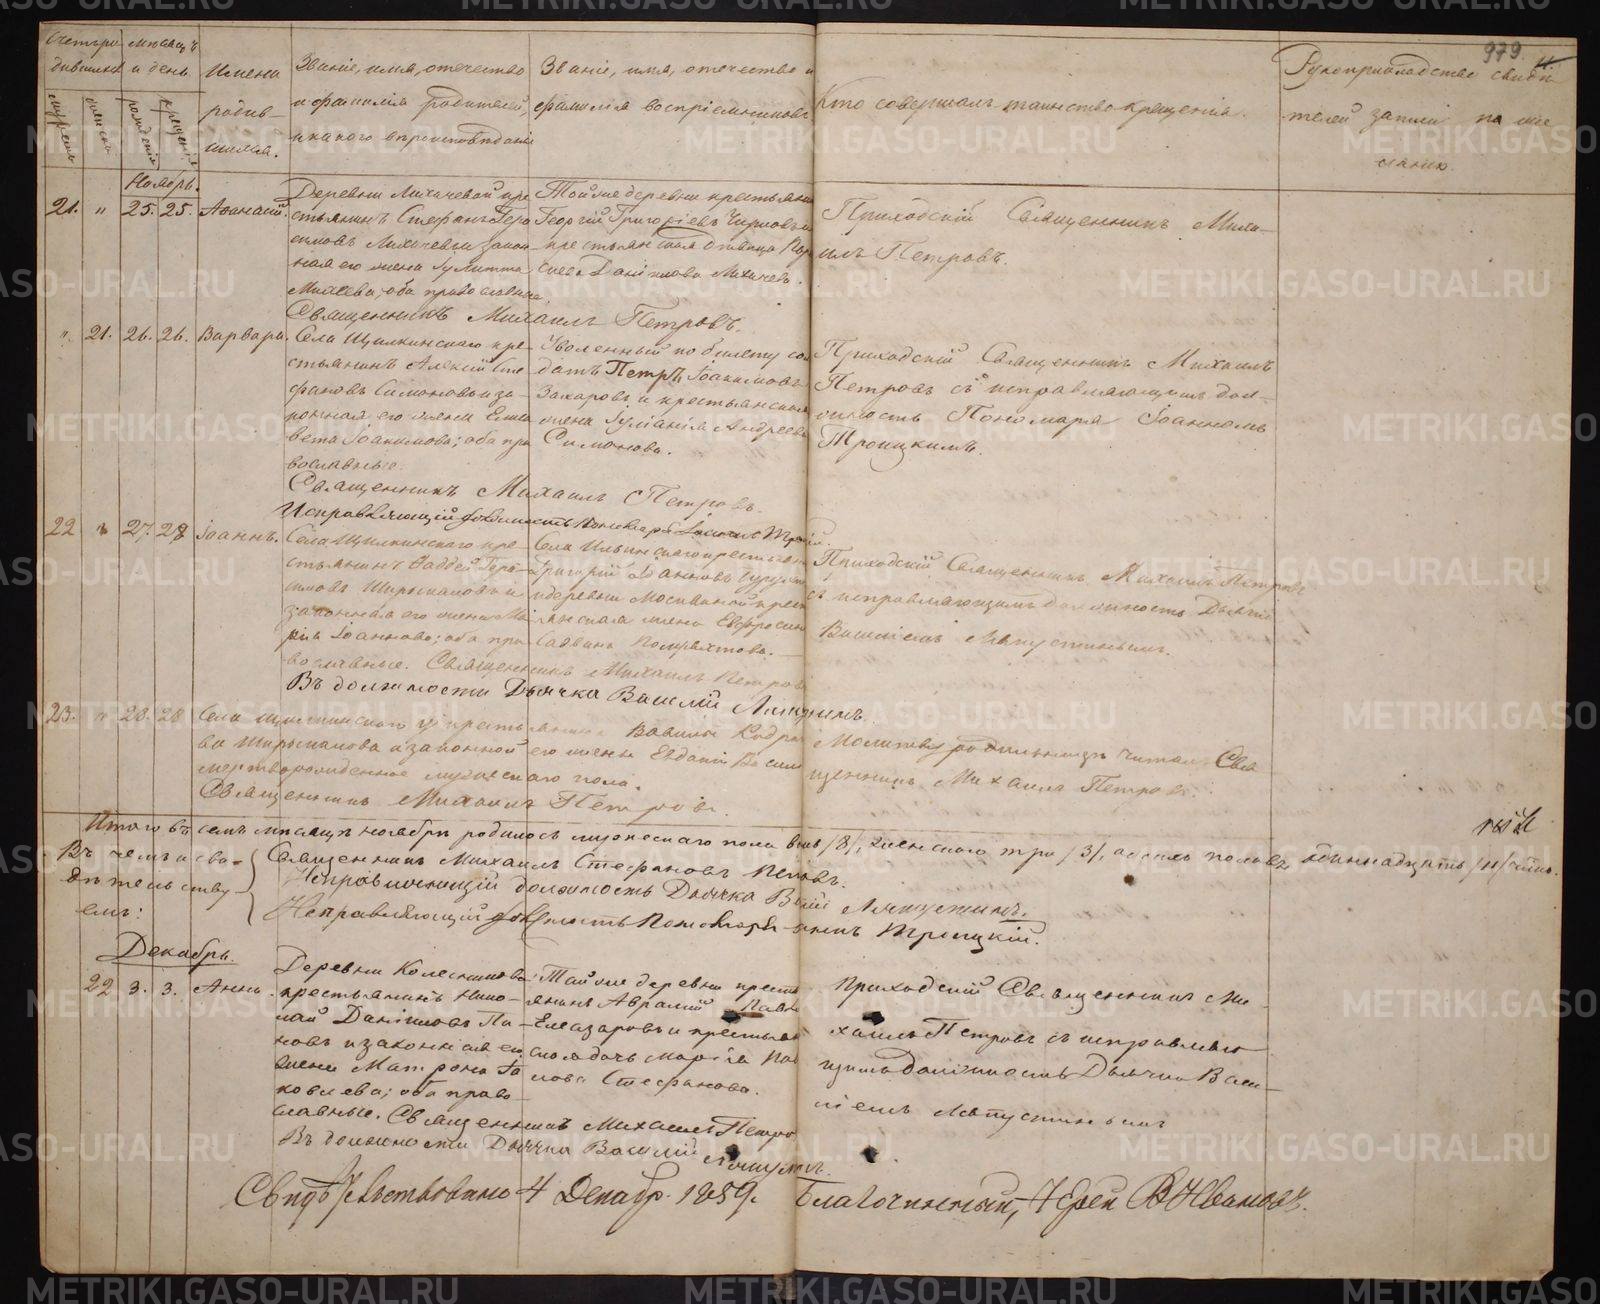 979.
Счетъ ро
дившихся
мѣсяцъ
и день
Имена
родив-
шихся.
Званіе, имя, отечество
и фамилія родителей,
и какого вѣроисповѣданія
Званіе, имя, отечество и
фамилія воспріемниковъ
Кто совершалъ таинство крещенія.
Рукоприкладство свидѣ
телей записи по же
ланію
мужеска
женска
рожденія
крещенія
Ноябрь.
21. " 25. 25. Аѳанасій.
Деревни Лихачевой кре
стьянинъ Стефанъ Гера
симовъ Лихачевъ и закон
ная его жена Іулитта
Михеева, оба православные
Священникъ Михаилъ Петровъ.
Той же деревни крестьянинъ
Георгій Григоріевъ
крестьянская дѣвица
Даніилова Лихачева.
Приходскій Священникъ Миха-
илъ Петровъ.
" 21. 26. 26. Варвара.
Села Щилкинскаго кре-
стьянинъ Алексій Сте
фановъ Симоновъ и за-
конная его жена Елиса
вета Іоакимова; оба пра
вославные.
Священникъ Михаилъ Петровъ.
Исправляющій должность Пономаря
Уволенный по билету сол
датъ Петръ Іоакимовъ
Захаровъ и крестьянская
жена Іуліанія Андреева
Симонова.
Приходскій Священникъ Михаилъ
Петровъ съ исправляющимъ дол-
жность Пономаря Іоанномъ
Троицкимъ.
22 " 27. 28 Іоаннъ.
Села Щилкинскаго кре-
стьянинъ Фаддей Гера-
симовъ Ширыкаловъ и
законная его жена Ма
рія Іоаннова; оба пра-
вославные. Священникъ Михаилъ Петровъ
Въ должности Дьячка Василій Ляпустинъ.
Села Ильинскаго крестьянинъ
Григорій Іоанновъ
и деревни Москвиной крест
янская жена Евфросинія
Приходскій Священникъ Михаилъ Петровъ
съ исправляющимъ должность Дьячка
Василіемъ Ляпустинымъ.
23. " 28. 28
Села Щилкинскаго у крестьянина Вавилы Кодра
ва Ширыкалова и законной его жены Евдокіи Васил
мертворожденное мужескаго пола.
Священникъ Михаилъ Петровъ.
Молитву родильницѣ читалъ Свя
щенникъ Михаилъ Петровъ.
Итого въ семъ мѣсяцѣ ноябрѣ родилось мужескаго пола восмь /8/, женскаго три /3/, обоего пола одиннадцать /11/
Въ чемъ и сви-
дѣтельству-
емъ:
Священникъ Михаилъ Стефановъ Петровъ.
Исправляющій должность Дьячка Васілій Ляпустинъ.
Исправляющій должность Пономаря Троицкій.
Декабрь.
22 3. 3. Анна.
Деревни Колесниковой
крестьянинъ Нико-
лай Даніиловъ Па-
новъ и законная его
жена Матрона Іа
ковлева; оба право
славные. Священникъ Михаилъ Петровъ
Въ должности Дьячка Василій Ляпустинъ.
Той же деревни кресть
янинъ Аврамій Павл
Елеазаровъ и крестьян
ская дочь Марѳа Пав
лова Стефанова.
Приходскій Священникъ Ми-
хаилъ Петровъ съ исправляю
щимъ должность Дьячка Васи-
ліемъ Ляпустинымъ
Свидѣтельствовано 4 Декабр. 1859. Благочинный, Іерей В Ивановъ.
METRIKI.GASO-URAL.RU